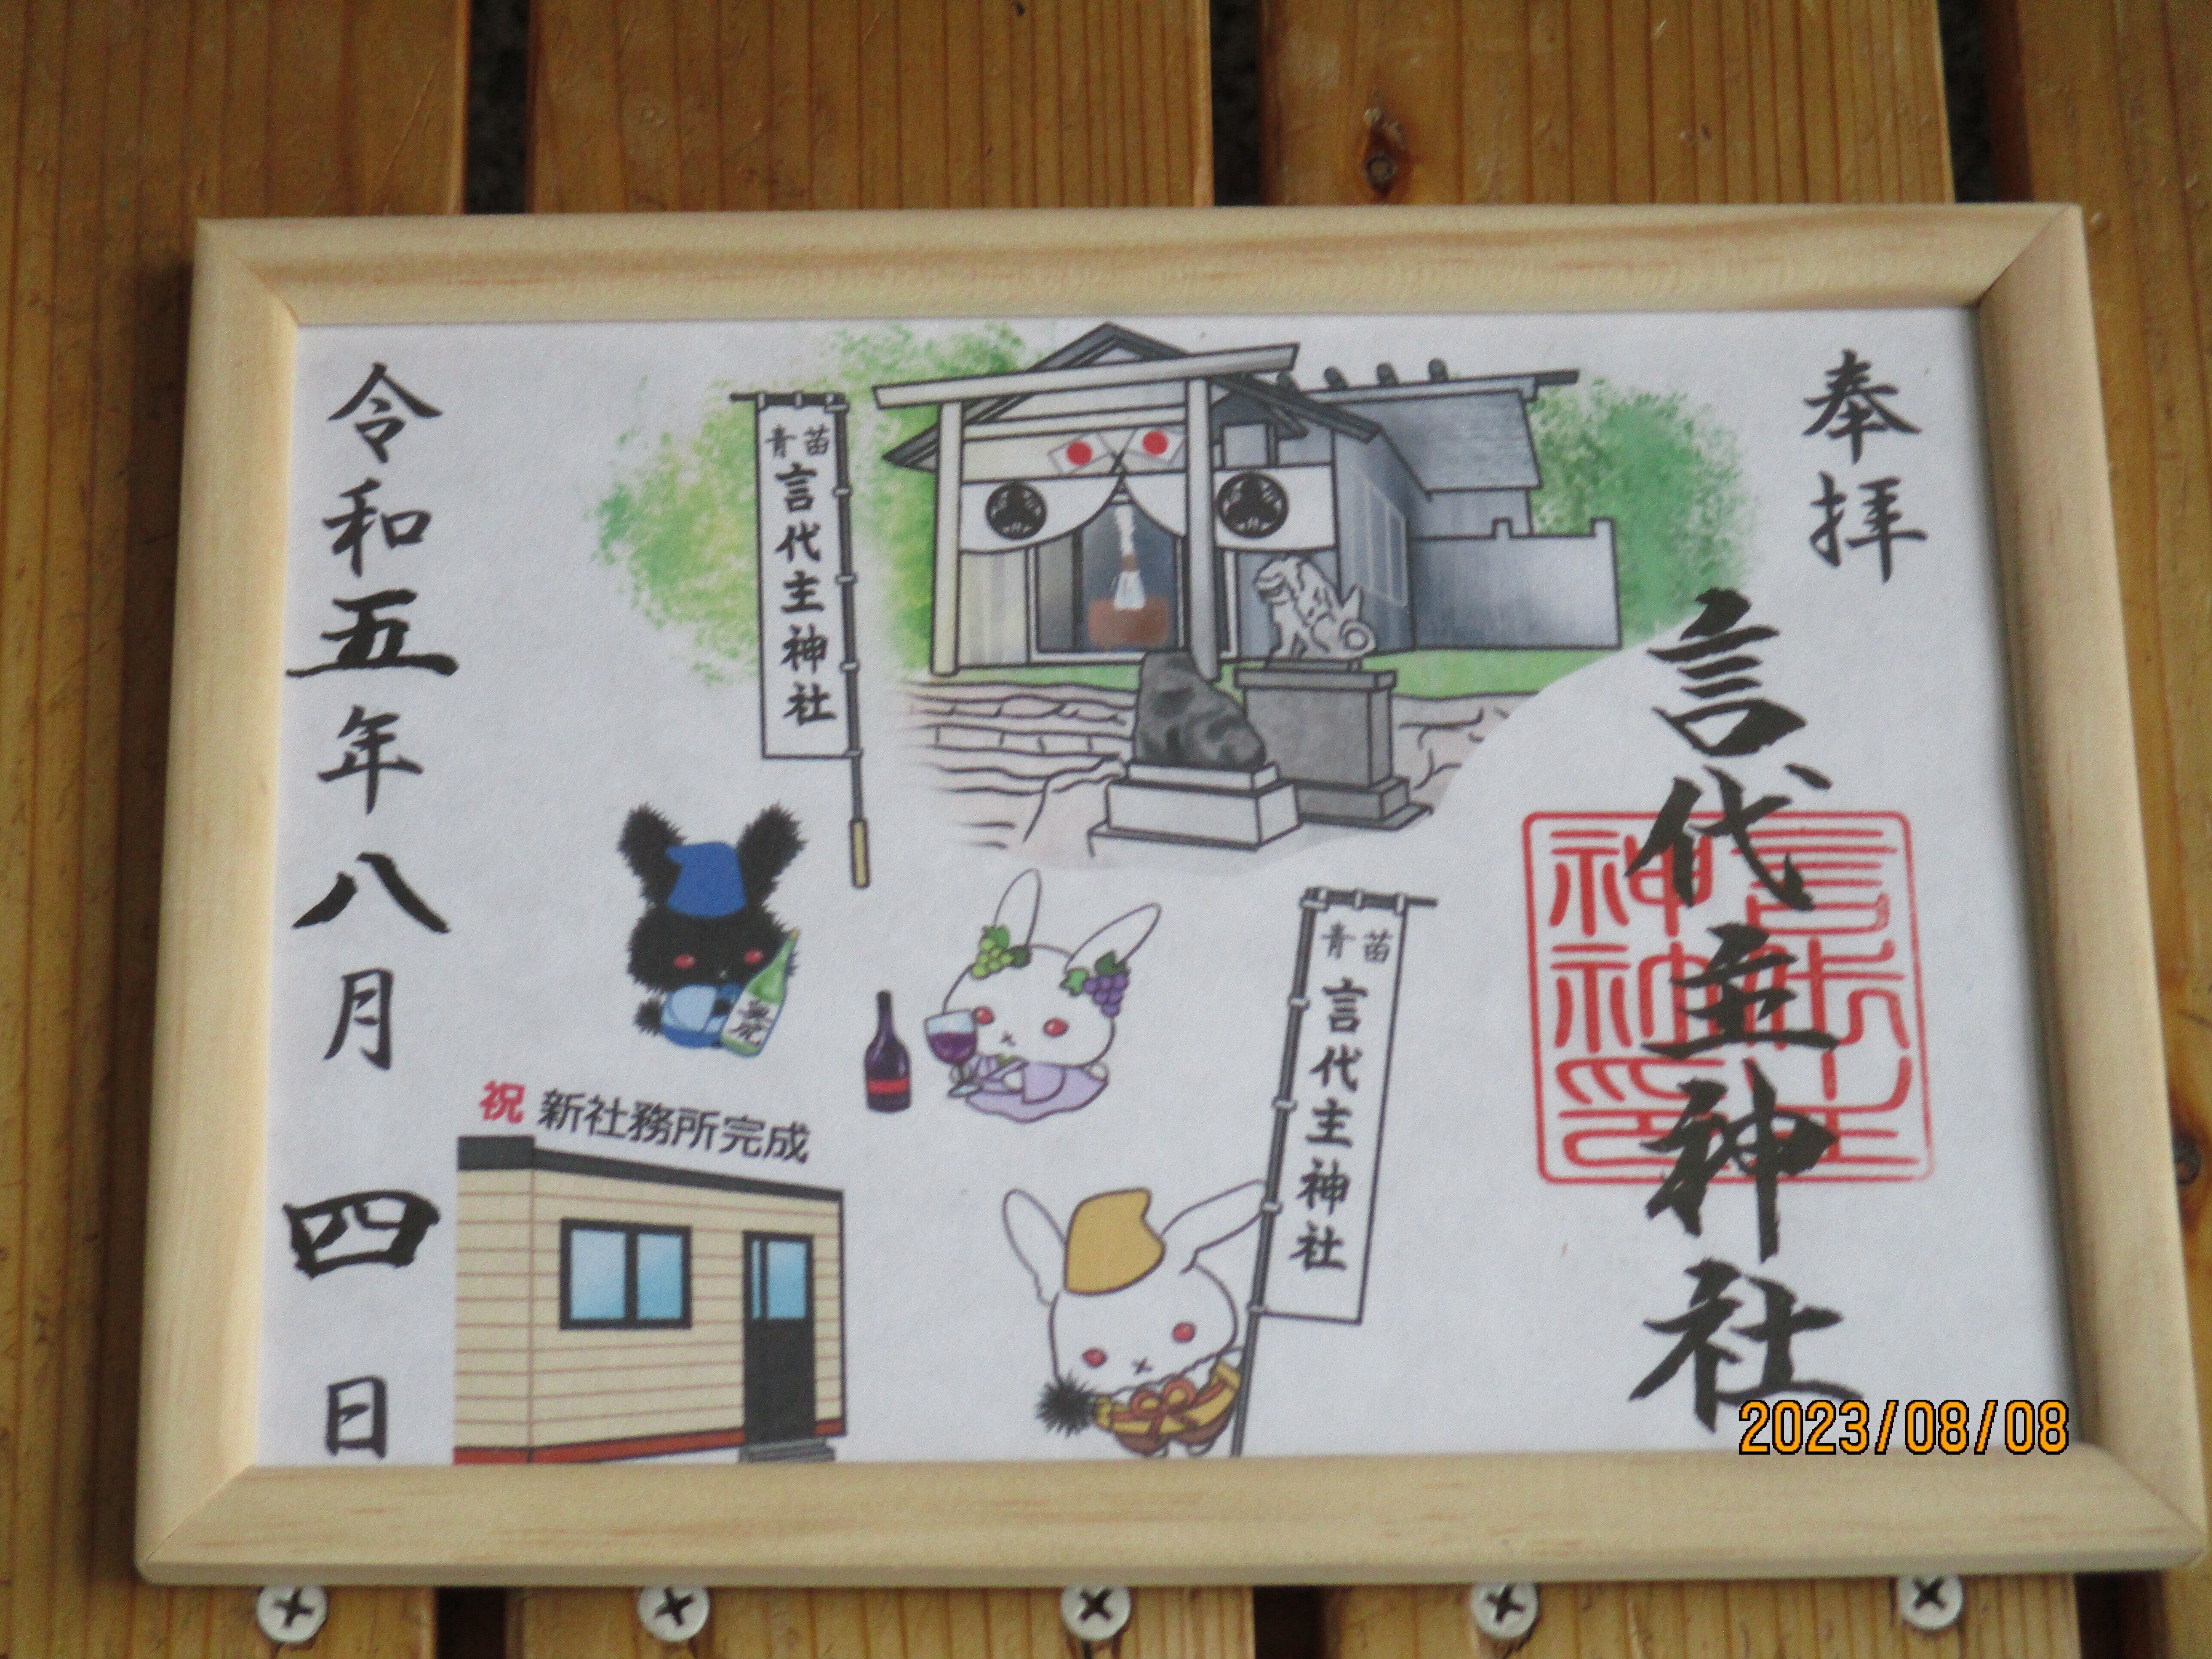 奉拝
言代主神社
言代主
神社印
青苗
言代主神社
青苗
言代主神社
祝 新社務所完成
令和五年八月四日
2023/08/08